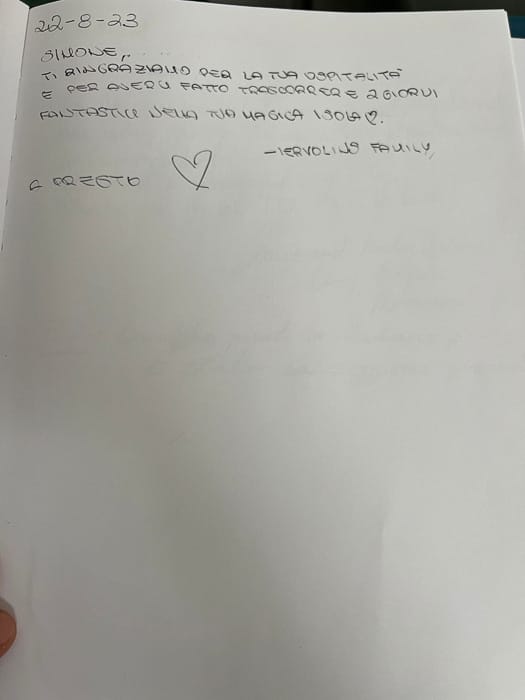 22-8-23
SIMONE,
TI RINGRAZIAMO PER LA TUA OSPITALITÀ
E PER AVERCI FATTO TRASCORRERE 2 GIORNI
FANTASTICI NELLA TUA MAGICA ISOLA ♡.
- IERVOLINO FAMILY
A PRESTO ♡